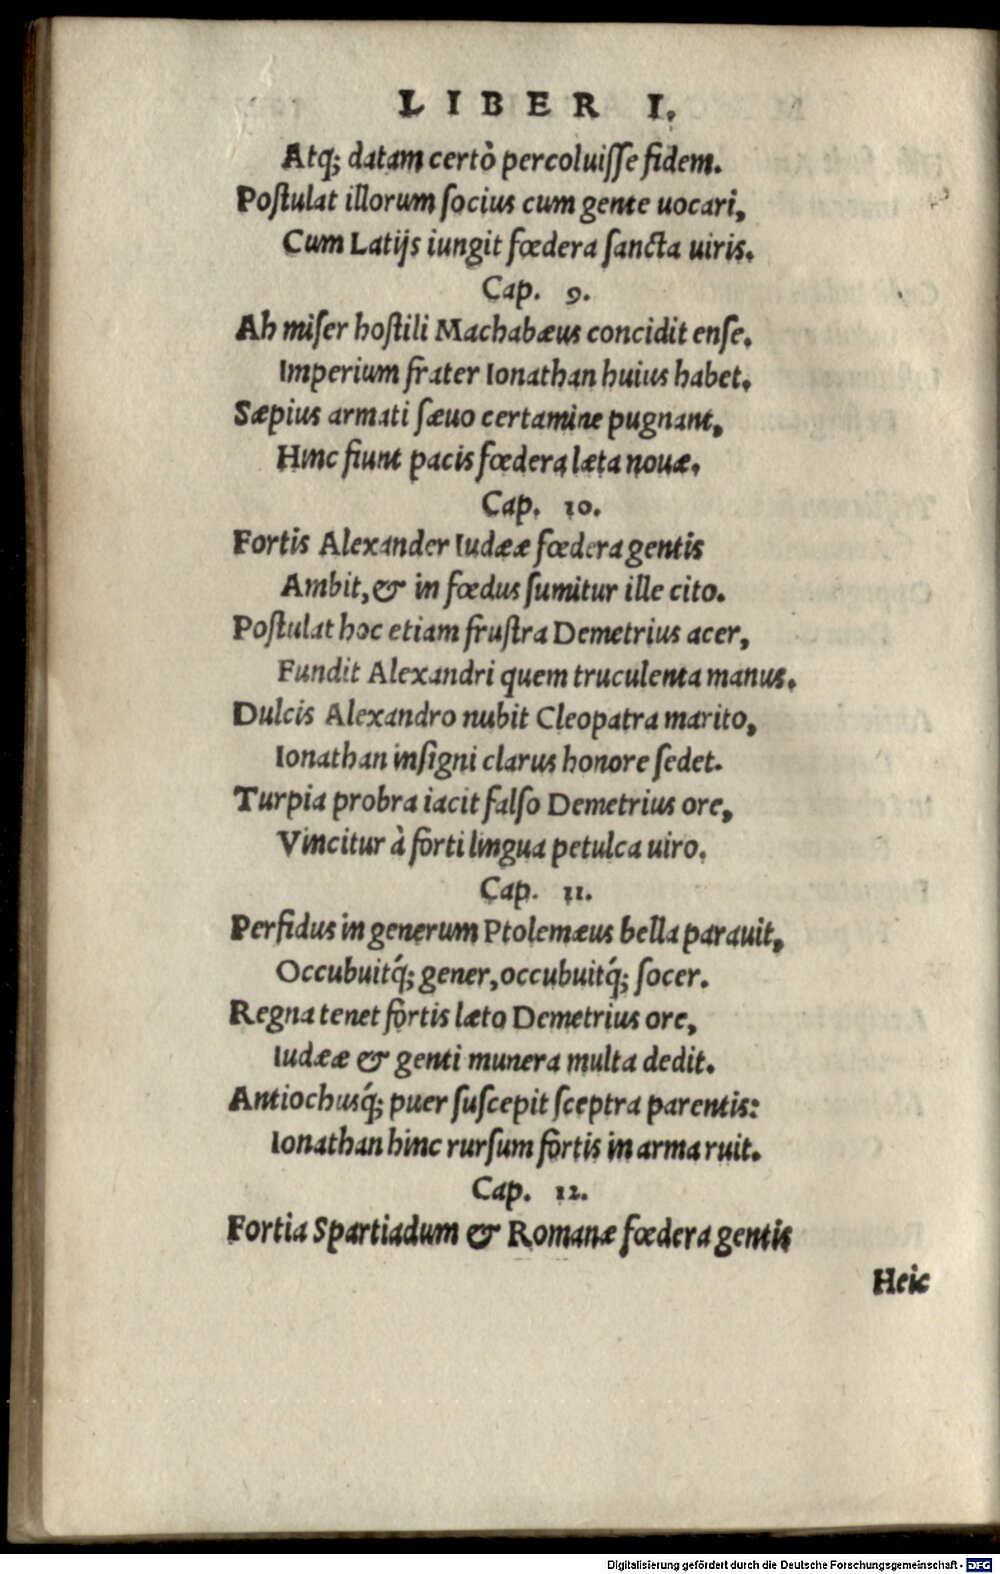 LIBER I.
Atq; datam certò percoluiſſe fidem.
Poſtulat illorum ſocius cum gente uocari,
Cum Latijs iungit fœdera ſancta uiris.
Cap. 9.
Ah miſer hoſtili Machabæus concidit enſe.
Imperium frater Ionathan huius habet.
Sæpius armati ſæuo certamine pugnant,
Hinc fiunt pacis fœdera læta nouæ.
Cap. 10.
Fortis Alexander Iudææ fœdera gentis
Ambit, & in fœdus ſumitur ille cito.
Poſtulat hoc etiam fruſtra Demetrius acer,
Fundit Alexandri quem truculenta manus.
Dulcis Alexandro nubit Cleopatra marito,
Ionathan inſigni clarus honore ſedet.
Turpia probra iacit falſo Demetrius ore,
Vincitur à forti lingua petulca uiro.
Cap. 11.
Perfidus in generum Ptolemæus bella parauit,
Occubuitq́; gener, occubuitq́; ſocer.
Regna tenet fortis læto Demetrius ore,
Iudææ & genti munera multa dedit.
Antiochusq́; puer ſuſcepit ſceptra parentis:
Ionathan hinc rurſum fortis in arma ruit.
Cap. 12.
Fortia Spartiadum & Romanæ fœdera gentis
Heic
Digitalisierung gefördert durch die Deutsche Forschungsgemeinschaft - DFG